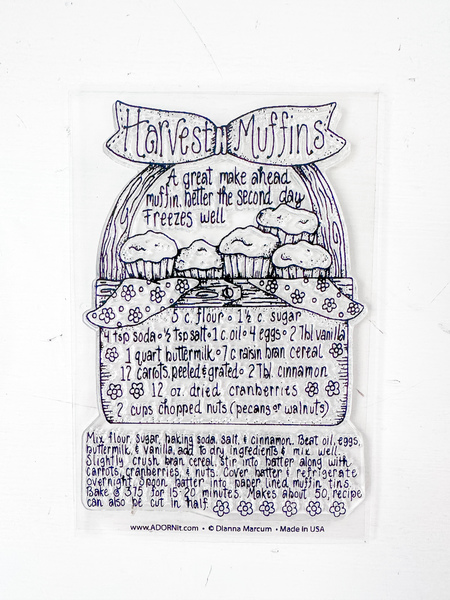 Harvest Muffins
A great make ahead
muffin, better the second day
Freezes well
5 c. flour • 1½ c. sugar
4 tsp soda • ½ tsp salt • 1 c. oil • 4 eggs • 2 Tbl vanilla
1 quart buttermilk • 7 c raisin bran cereal
12 carrots, peeled & grated • 2 Tbl. cinnamon
12 oz. dried cranberries
2 cups chopped nuts (pecans or walnuts)
Mix flour, sugar, baking soda, salt, & cinnamon. Beat oil, eggs,
buttermilk, & vanilla, add to dry ingredients & mix well.
Slightly crush bran cereal. Stir into batter along with
carrots, cranberries, & nuts. Cover batter & refrigerate
overnight. Spoon batter into paper lined muffin tins.
Bake @ 375 for 15-20 minutes. Makes about 50, recipe
can also be cut in half.
www.ADORNit.com • © Dianna Marcum • Made in USA